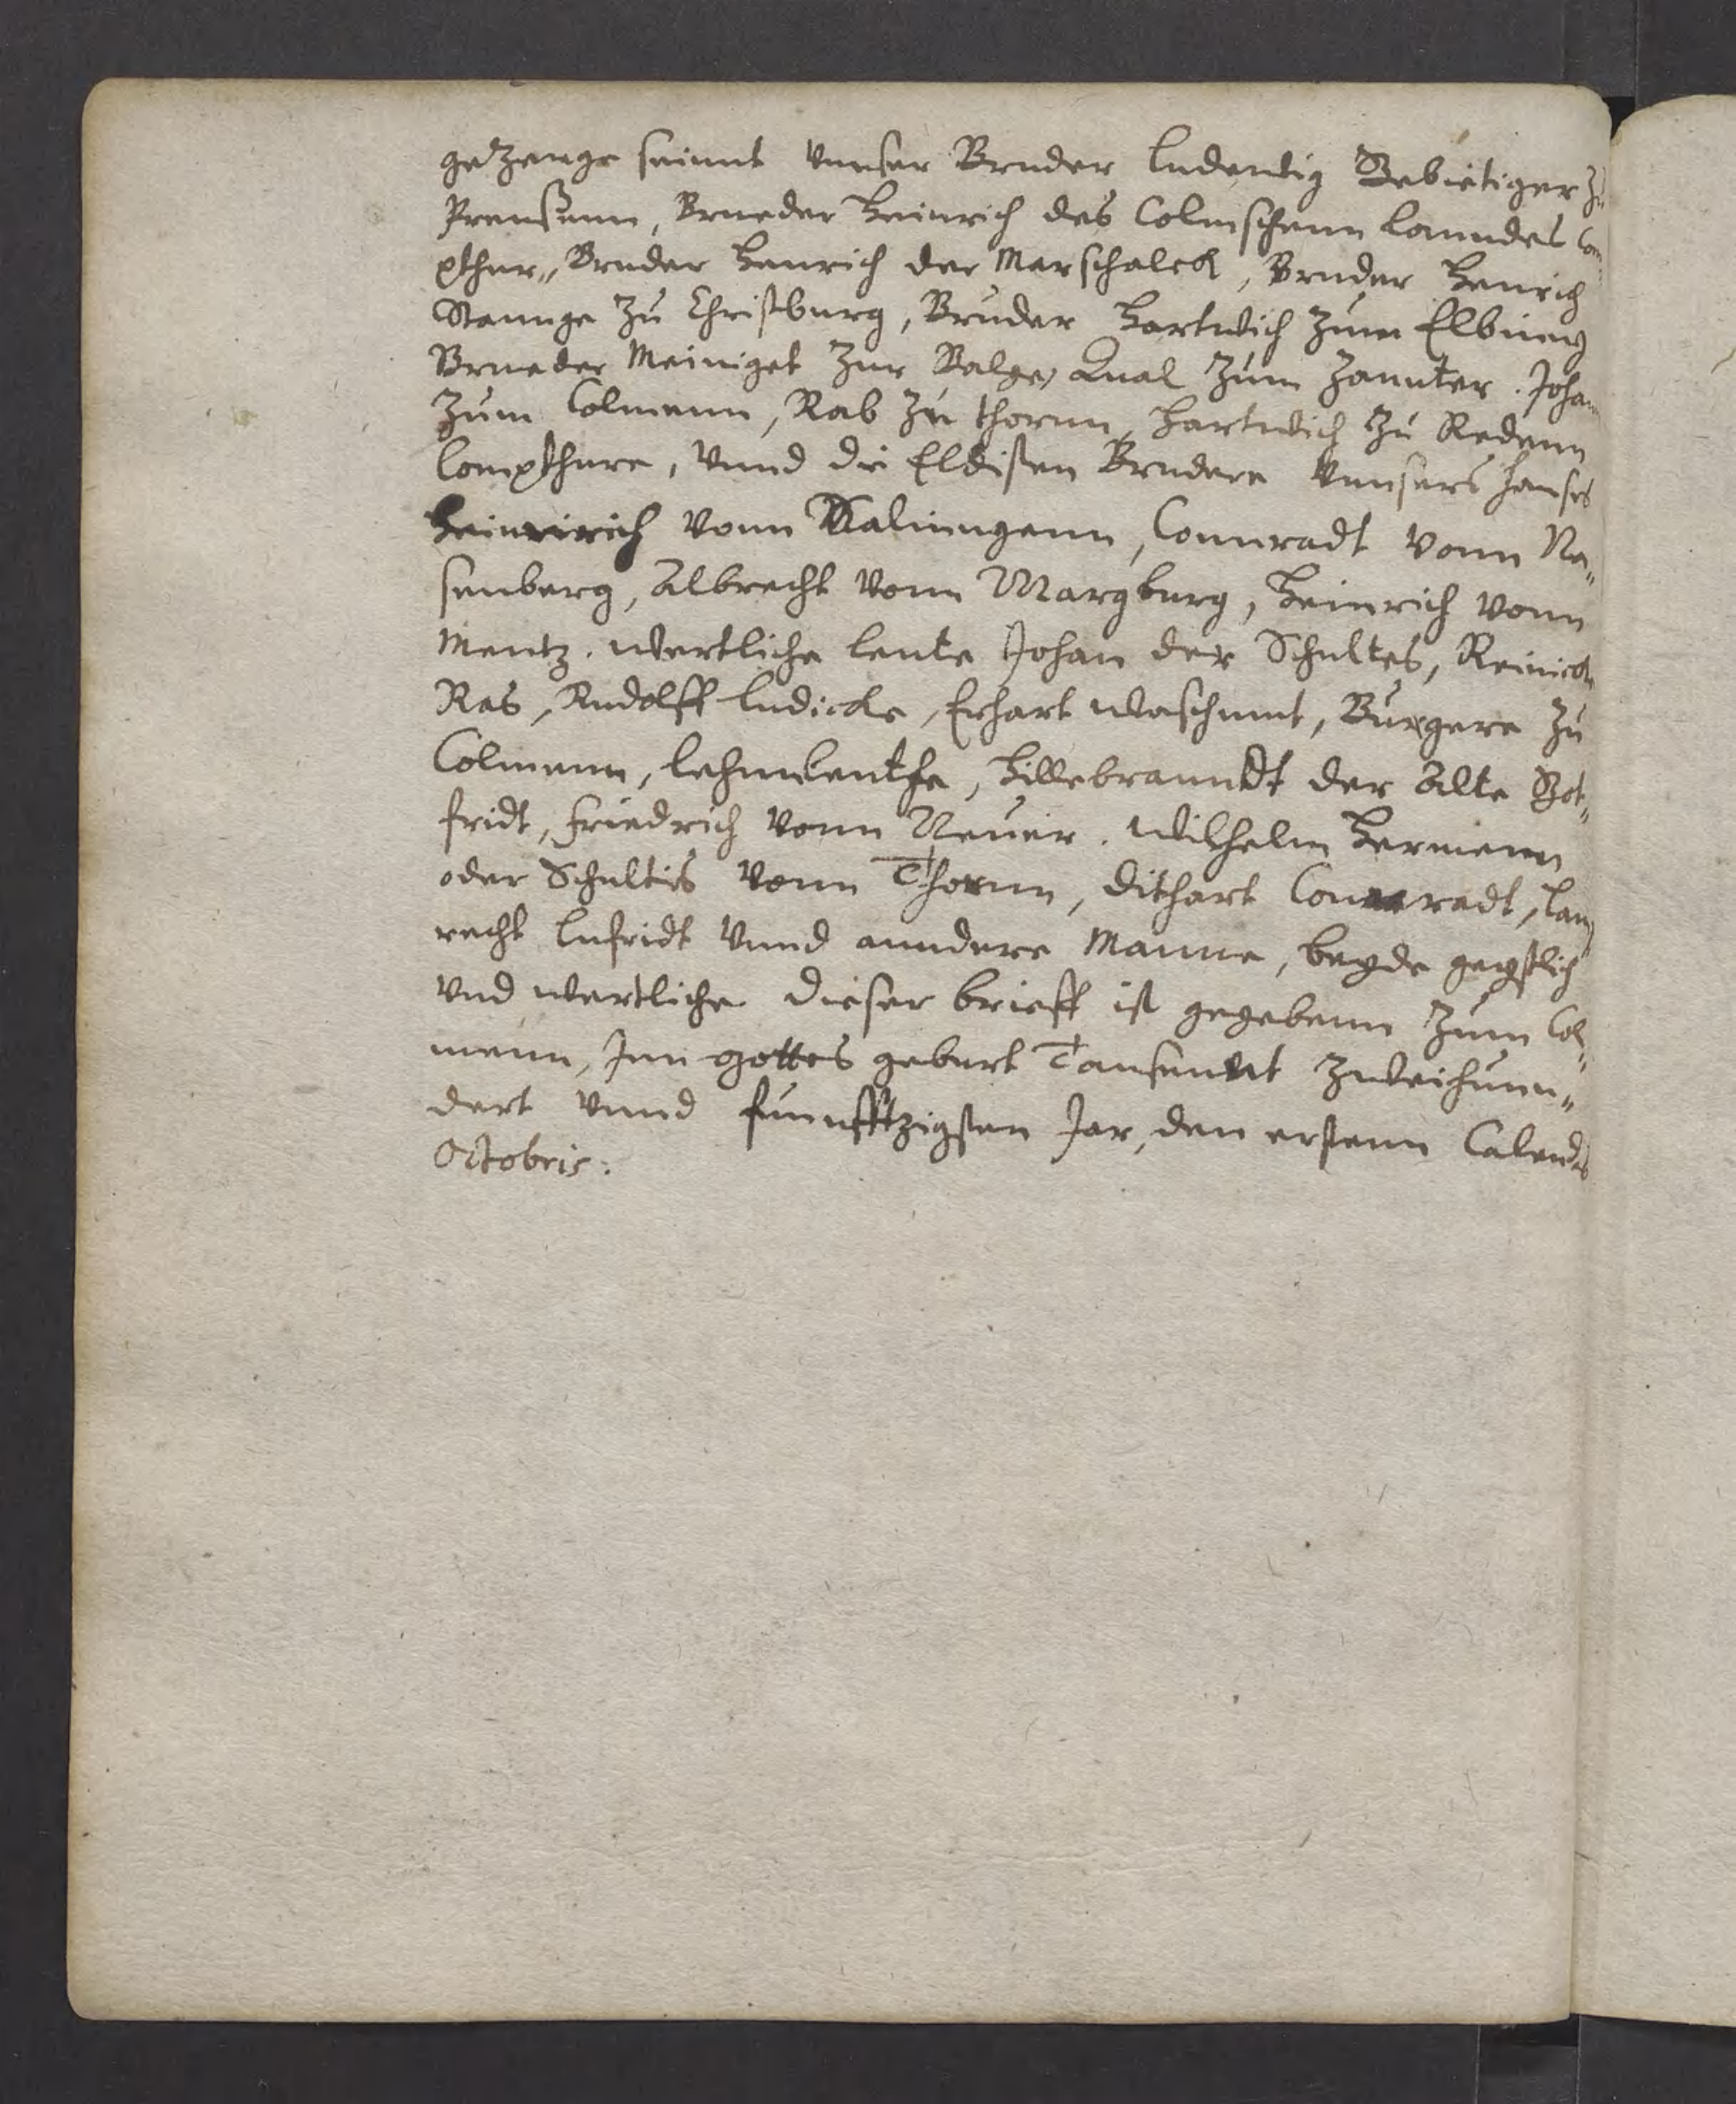 getzeuge seinnt vnnser Bruder ludewig Gebietiger zu
Preussenn, Brueder Heinrich des Colmschenn lanndes Com
pthur,, Bruder Henrich der Marschalck, Bruder Henrich
Stannge zu Christburg, Bruder Hartwich zum Elbing
Brueder Meiniget zur Balge, Qual zum Zannter. Johan
zum Colmenn, Rab zu thornn, Hartwich zu Redenn
Compthure, vnnd die Eldisten Brudere vnnsers hauses
Heinrich vonn Walinngenn, Connradt vonn Na„
senberg, Albrecht vonn Margburg, Heinrich vonn
Mentz. wertliche leute Johan der Schultes, Reinick
Ras, Rudolff ludicke, Erhart waschmut, Burgere zu
Colmenn, lehnleuthe, Hillebranndt der Alte Got„
fridt, friedrich vonn Neuer. Wilhelm Hermenn
oder Schultis vonn Thornn, dithart Connradt, lamp
recht lufridt vnnd anndere Manne, beyde geystlich
vnd wertliche. dieser brieff ist gegebenn zum Col„
menn, Inn gottes geburt Tausennt zweihunn„
dert vnnd funnfftzigsten Jar, den erstenn Calendis
Octobris: